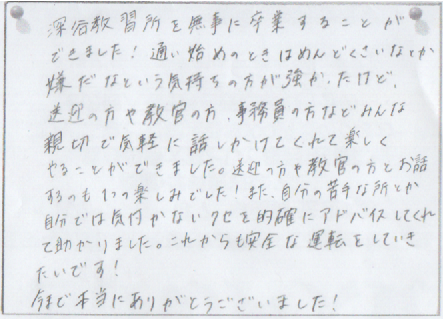 深谷教習所を無事に卒業することが
できました！通い始めのときはめんどくさいなとか
嫌だなという気持ちの方が強かったけど、
送迎の方や教官の方、事務員の方などみんな
親切で気軽に話しかけてくれて楽しく
やることができました。送迎の方や教官の方とお話
するのも1つの楽しみでした！また、自分の苦手な所とか
自分では気付かないクセを的確にアドバイスしてくれ
て助かりました。これからも安全な運転をしていき
たいです！
今まで本当にありがとうございました！